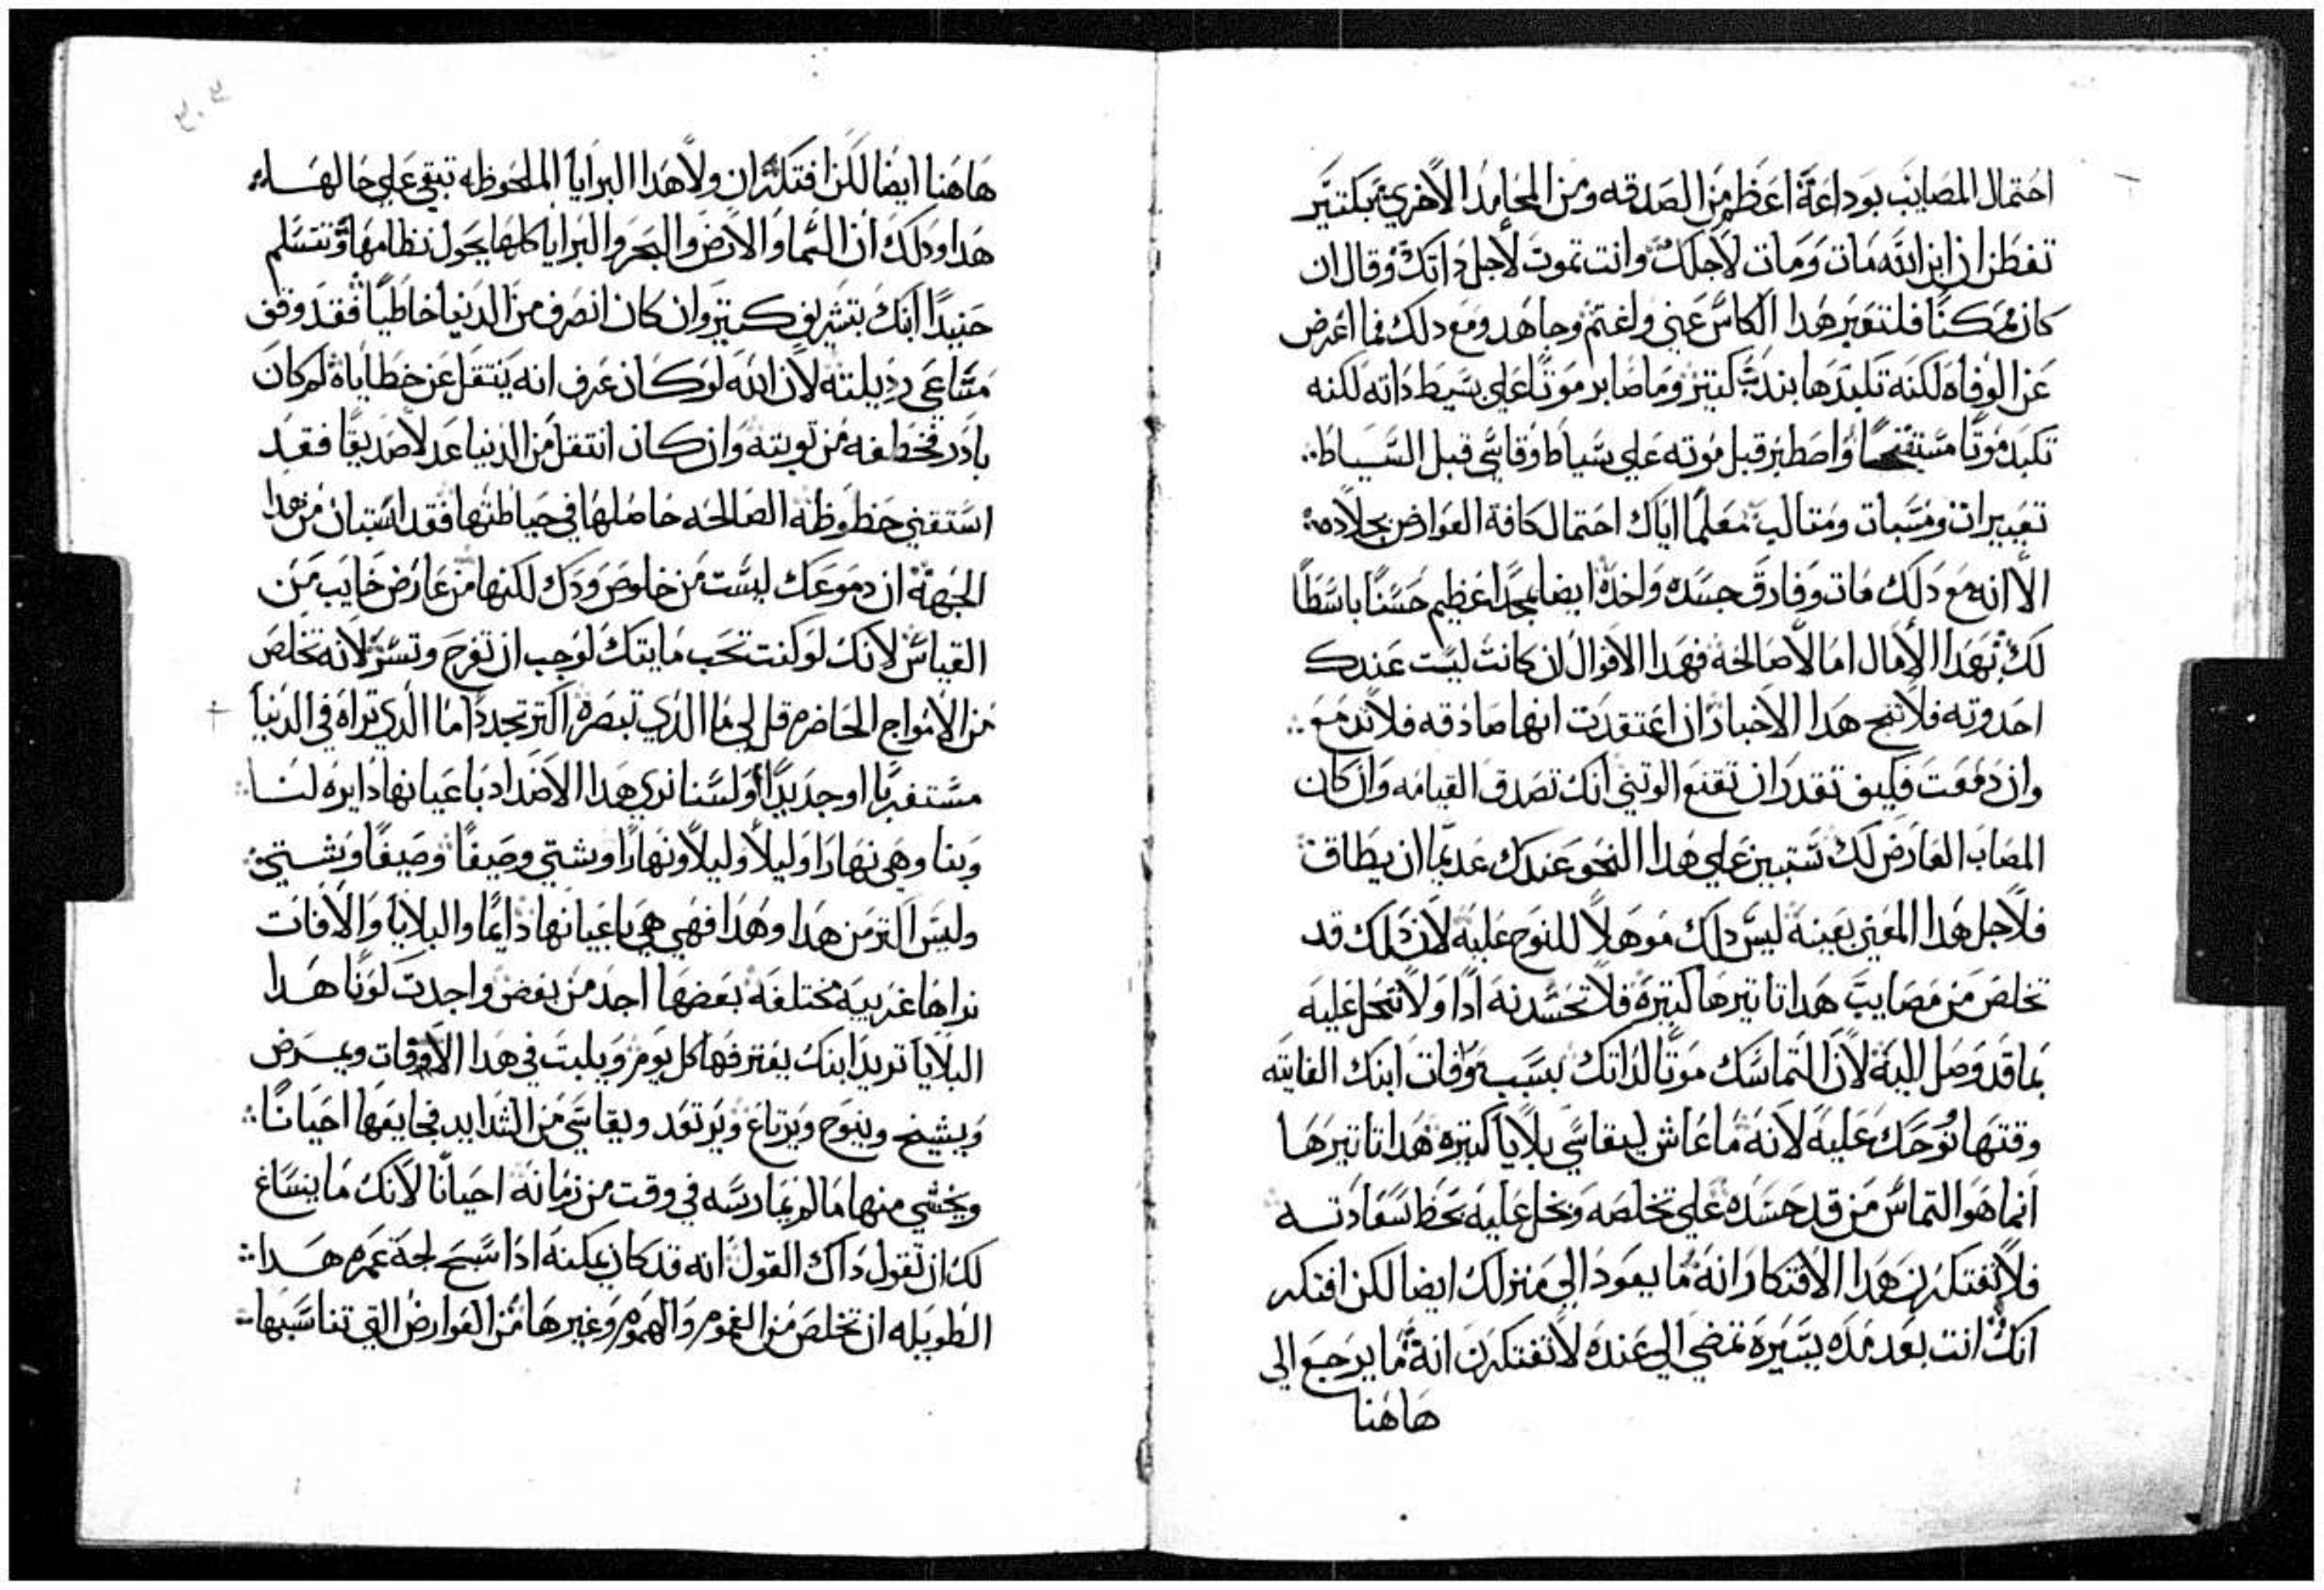 احتمال المصايب بوداعة اعظم من الصدقه ومن المحامد الاخري بكتير
تفطن ان ابن الله مات ومات لاجلك وانت تموت لاجل داتك وقال ان
كان ممكنًا فلتعبر هدا الكاس عني واغتم وجاهد ومع دلك فما اعرض
عن الوفاه لكنه تكبدها بندب كتير وما صابر موتًا علي بسيط داته لكنه
تكبد موتًا مستقبحًا واصطبر قبل موته علي سياط وقاسي قبل السياط
تعييرات ومسبات ومتالب معلمًا اياك احتمال كافة العوارض بجلاده
الا انه مع دلك مات وفارق جسده واخده ايضا بمجد اعظم حسنًا باسطًا
لك بهدا الامال امالا صالحة فهدا الاقوال ان كانت ليست عندك
احدوته فلا تنح هدا الاخبار ان اعتقدت انها صادقه فلا تدمع
وان دمعت فكيف تقدر ان تقنع الوتني انك تصدق القيامه وان كان
المصاب العارض لك تستبين علي هدا النحو عندك عديمًا ان يطاق
فلاجل هدا المعني بعينه ليس دلك موهلا للنوح عليه لان دلك قد
تخلص من مصايب هدا تاتيرها كتيرة فلا تحسدنه ادًا ولا تبخل عليه
بما قد وصل اليه لان التماسك موتًا لداتك بسبب وفات ابنك الفايته
وقتها نوحك عليه لانه ما عاش ليقاسي بلايا كتيره هدا تاتيرها
انما هو التماس من قد حسده علي تخلصه وبخل عليه بحظ سعادته
فلا تفتكرن هدا الافتكار انه ما يعود الي منزلك ايضا لكن افتكر
انك انت بعد مده يسيرة تمضي الي عنده لا تفتكرن انه ما يرجع الي
هاهنا
هاهنا ايضا لكن افتكر ان ولا هدا البرايا الملحوظه تبقي علي حالها
هدا ودلك ان السما والارض والبحر والبرايا كلها يحول نظامها وتتسلم
حنيدًا ابنك بتشريف كتير وان كان انصرف من الدنيا خاطيًا فقد وقف
متناعي رديلته لان الله لو كان عرف انه ينتقل عن خطاياه لم كان
بادر فخطفه من توبته وان كان انتقل من الدنيا عدلا صديقًا فقد
استقني حظوظه الصالحه حاصلها في حياطتها فقد استبان من هدا
الجهة ان دموعك ليست من خلوص ودك لكنها من عارض خايب من
القياس لانك لو كنت تحب مايتك لوجب ان تفرح وتسر لانه تخلص
من الامواج الحاضره قل لي ما الدي تبصره اكتر تجددًا ما الدي تراه في الدنيا
مستغربًا او جديدًا اولسنا نري هدا الاضداد باعيانها دايره لنا
وبنا وهي نهارًا وليلًا وليلًا ونهارًا وشتي وصيفًا وصيفًا وشتي
وليس اكتر من هدا وهدا فهي هي باعيانها دايمًا والبلايا والافات
نراها غريبه مختلفة بعضها احد من بعض واجدت لونًا هدا
البلايا تريد ابنك يغترفها كل يوم ويلبت في هدا الاوقات ويمرض
ويشيخ وينوح ويرتاع ويرتعد ويقاسي من الشدايد فجايعها احيانًا
ويخشي منها ما لم يمارسه في وقت من زمانه احيانًا لانك ما ينساغ
لك ان تقول داك القول انه قد كان يمكنه ادا سبح لجة عمره هدا
الطويله ان تخلص من الغموم والهموم وغيرها من العوارض التي تناسبها